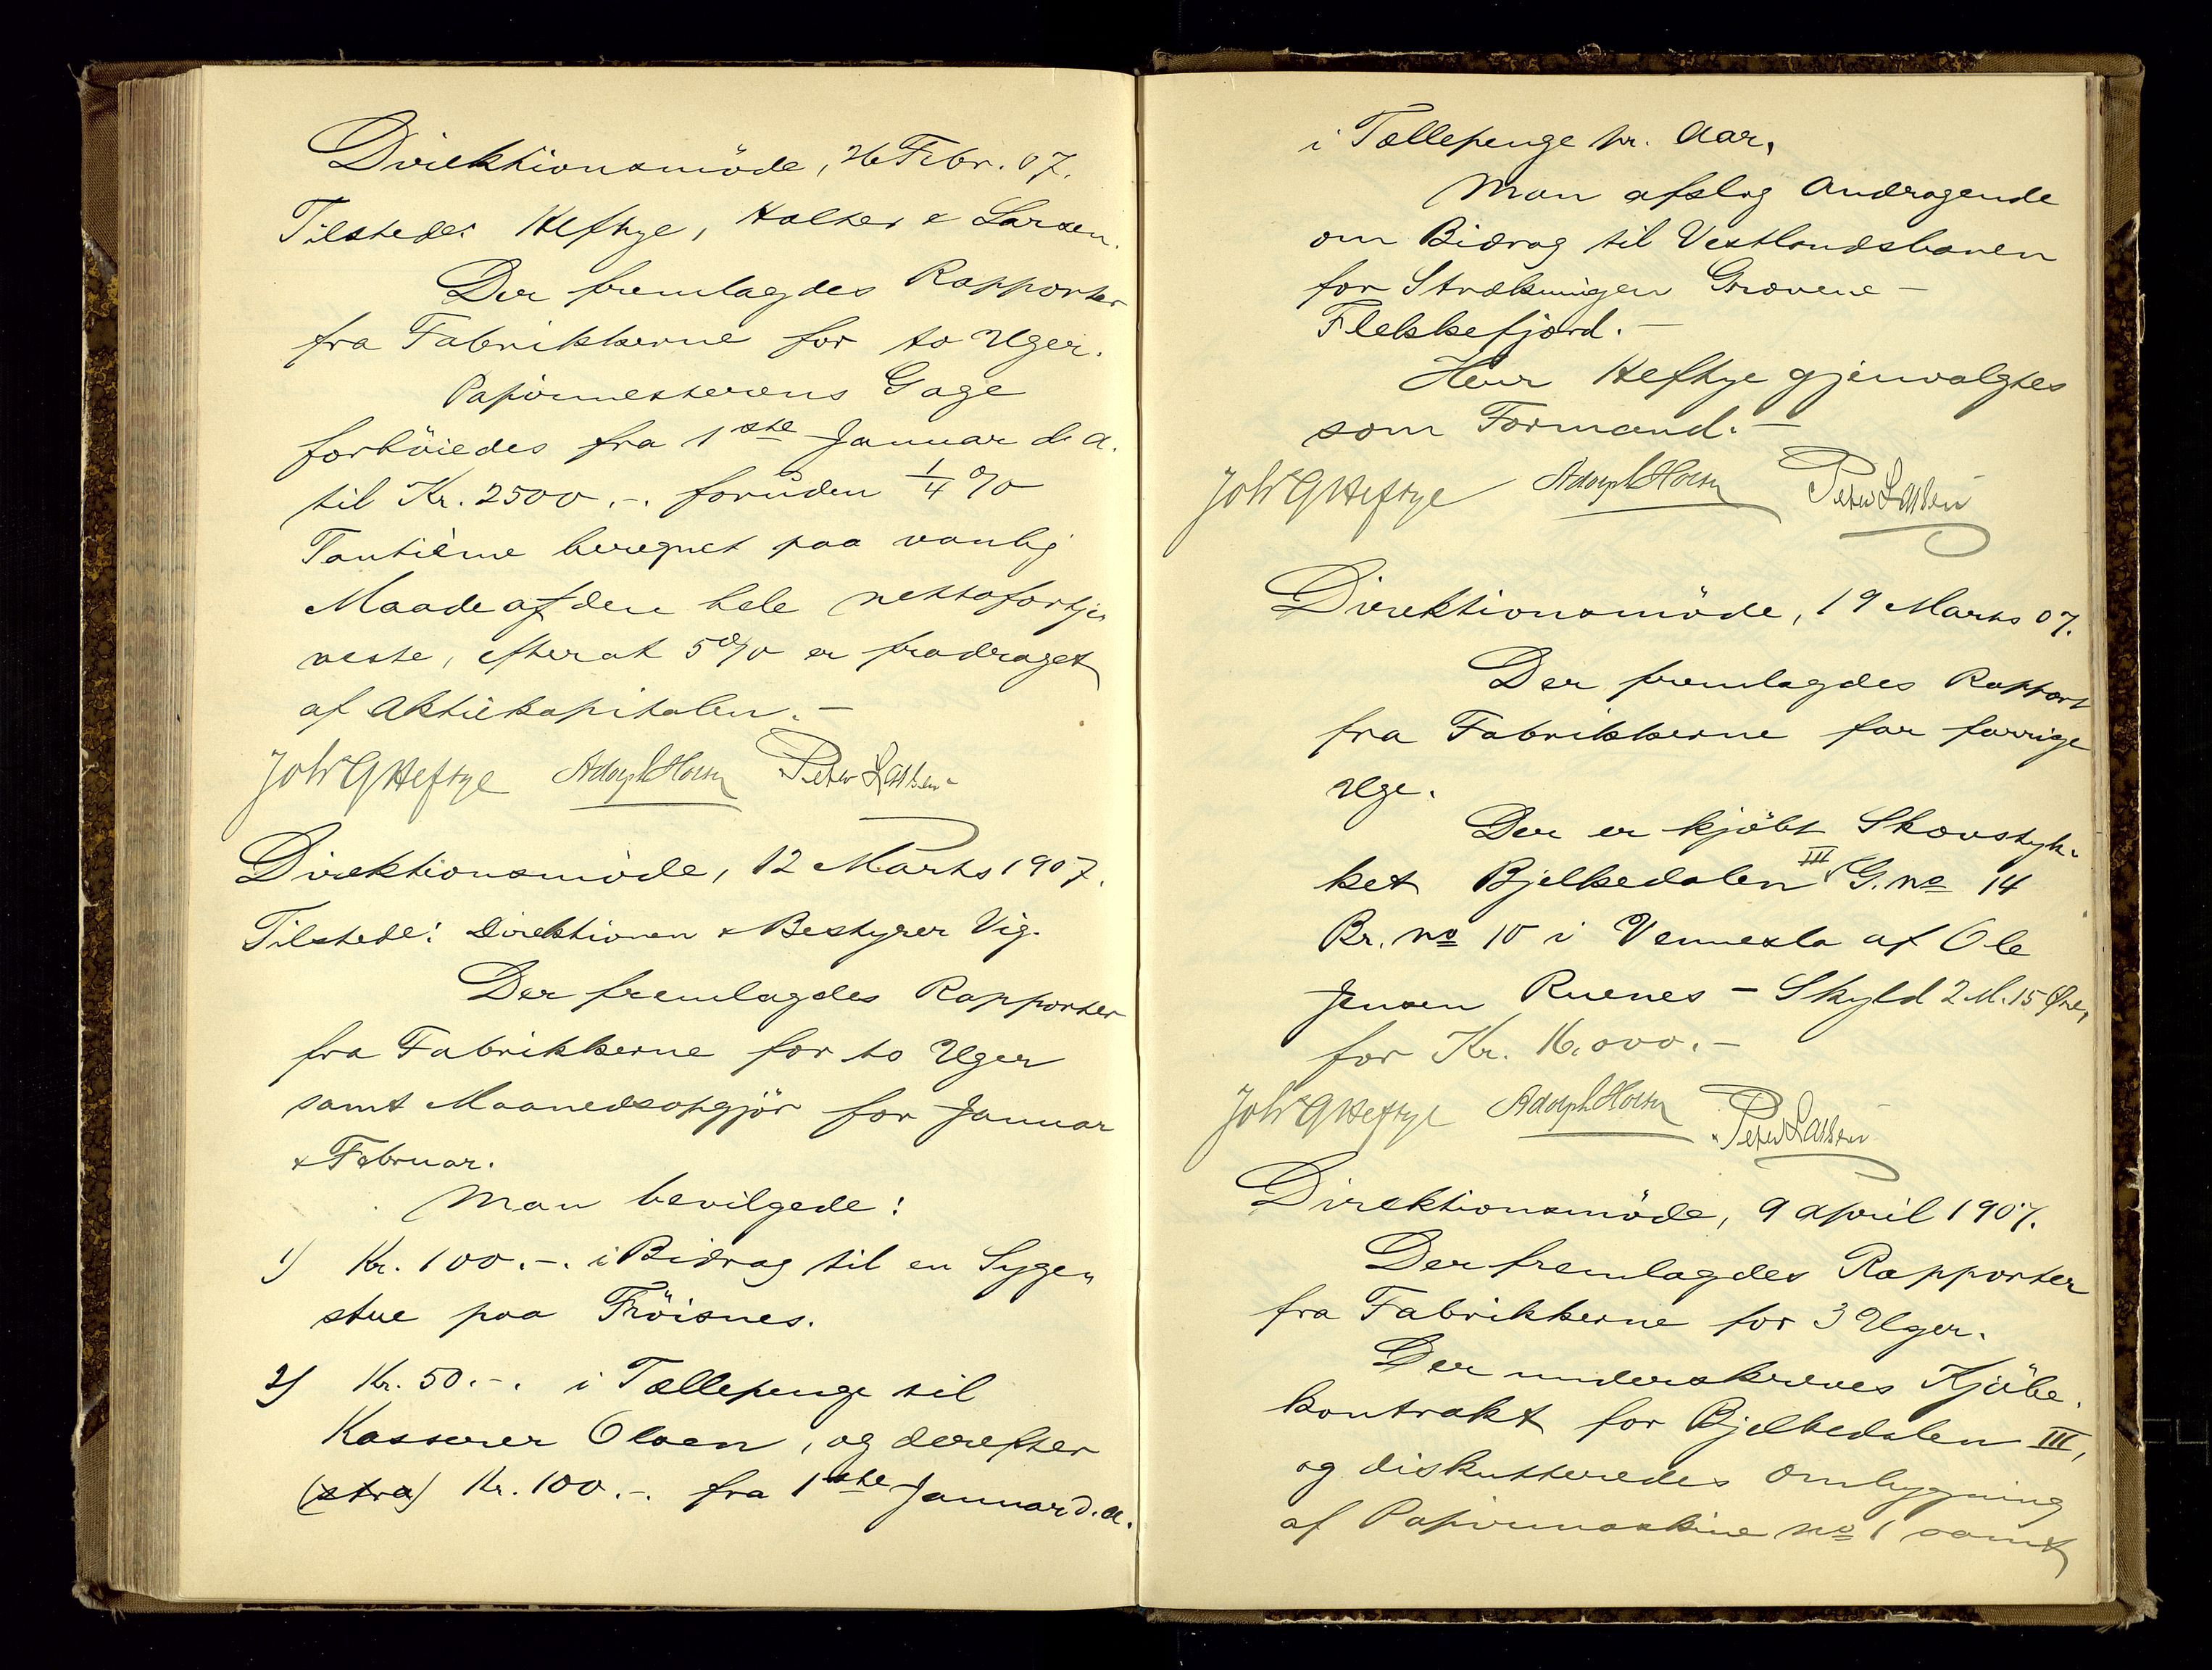 Direktionsmöde, 26 Febr. 07.
Tilstede: Heftye, Holter & Larsen.
Der fremlagdes Rapporter
fra Fabrikkerne for to Uger.
Papirmesterens Gage
forhöiedes fra 1ste Januar d. a.
til Kr. 2500.-. foruden 1/4 %
Tantième beregnet paa vanlig
Maade af den hele nettofortje-
neste, efterat 5% er fradraget
af Aktiekapitalen.-
Joh's G Heftye Adolph Holter Peter Larsen
Direktionsmöde, 12 Marts 1907.
Tilstede: Direktionen & Bestyrer Vig.
Der fremlagdes Rapporter
fra Fabrikkerne for to Uger
samt Maanedsopgjör for Januar
& Februar.
Man bevilgede:
1) Kr. 100.-. i Bidrag til en Syge-
stue paa Fröisnes.
2) Kr. 50.-. i Tællepenge til
Kasserer Olsen, og derefter
Kr. 100.-. fra 1ste Januar d. a.
i Tællepenge pr. Aar.
Man afslog Andragende
om Bidrag til Vestlandsbanen
for Strækningen Grovene -
Flekkefjord.-
Herr Heftye gjenvalgtes
som Formand.-
Joh's G Heftye Adolph Holter Peter Larsen
Direktionsmöde, 19 Marts 07.
Der fremlagdes Rapport
fra Fabrikkerne for forrige
Uge.
Der er kjöbt Skovstyk-
ket Bjelkedalen III G. no 14
Br. no 10 i Vennesla af Ole
Jensen Ruenes - Skyld 2 M. 15 Øre,
for Kr. 16.000.-
Joh's G Heftye Adolph Holter Peter Larsen
Direktionsmöde, 9 April 1907.
Der fremlagdes Rapporter
fra Fabrikkerne for 3 Uger.
Der underskreves Kjöbe-
kontrakt for Bjelkedalen III,
og diskutteredes Ombygning
af Papirmaskine no 1 samt